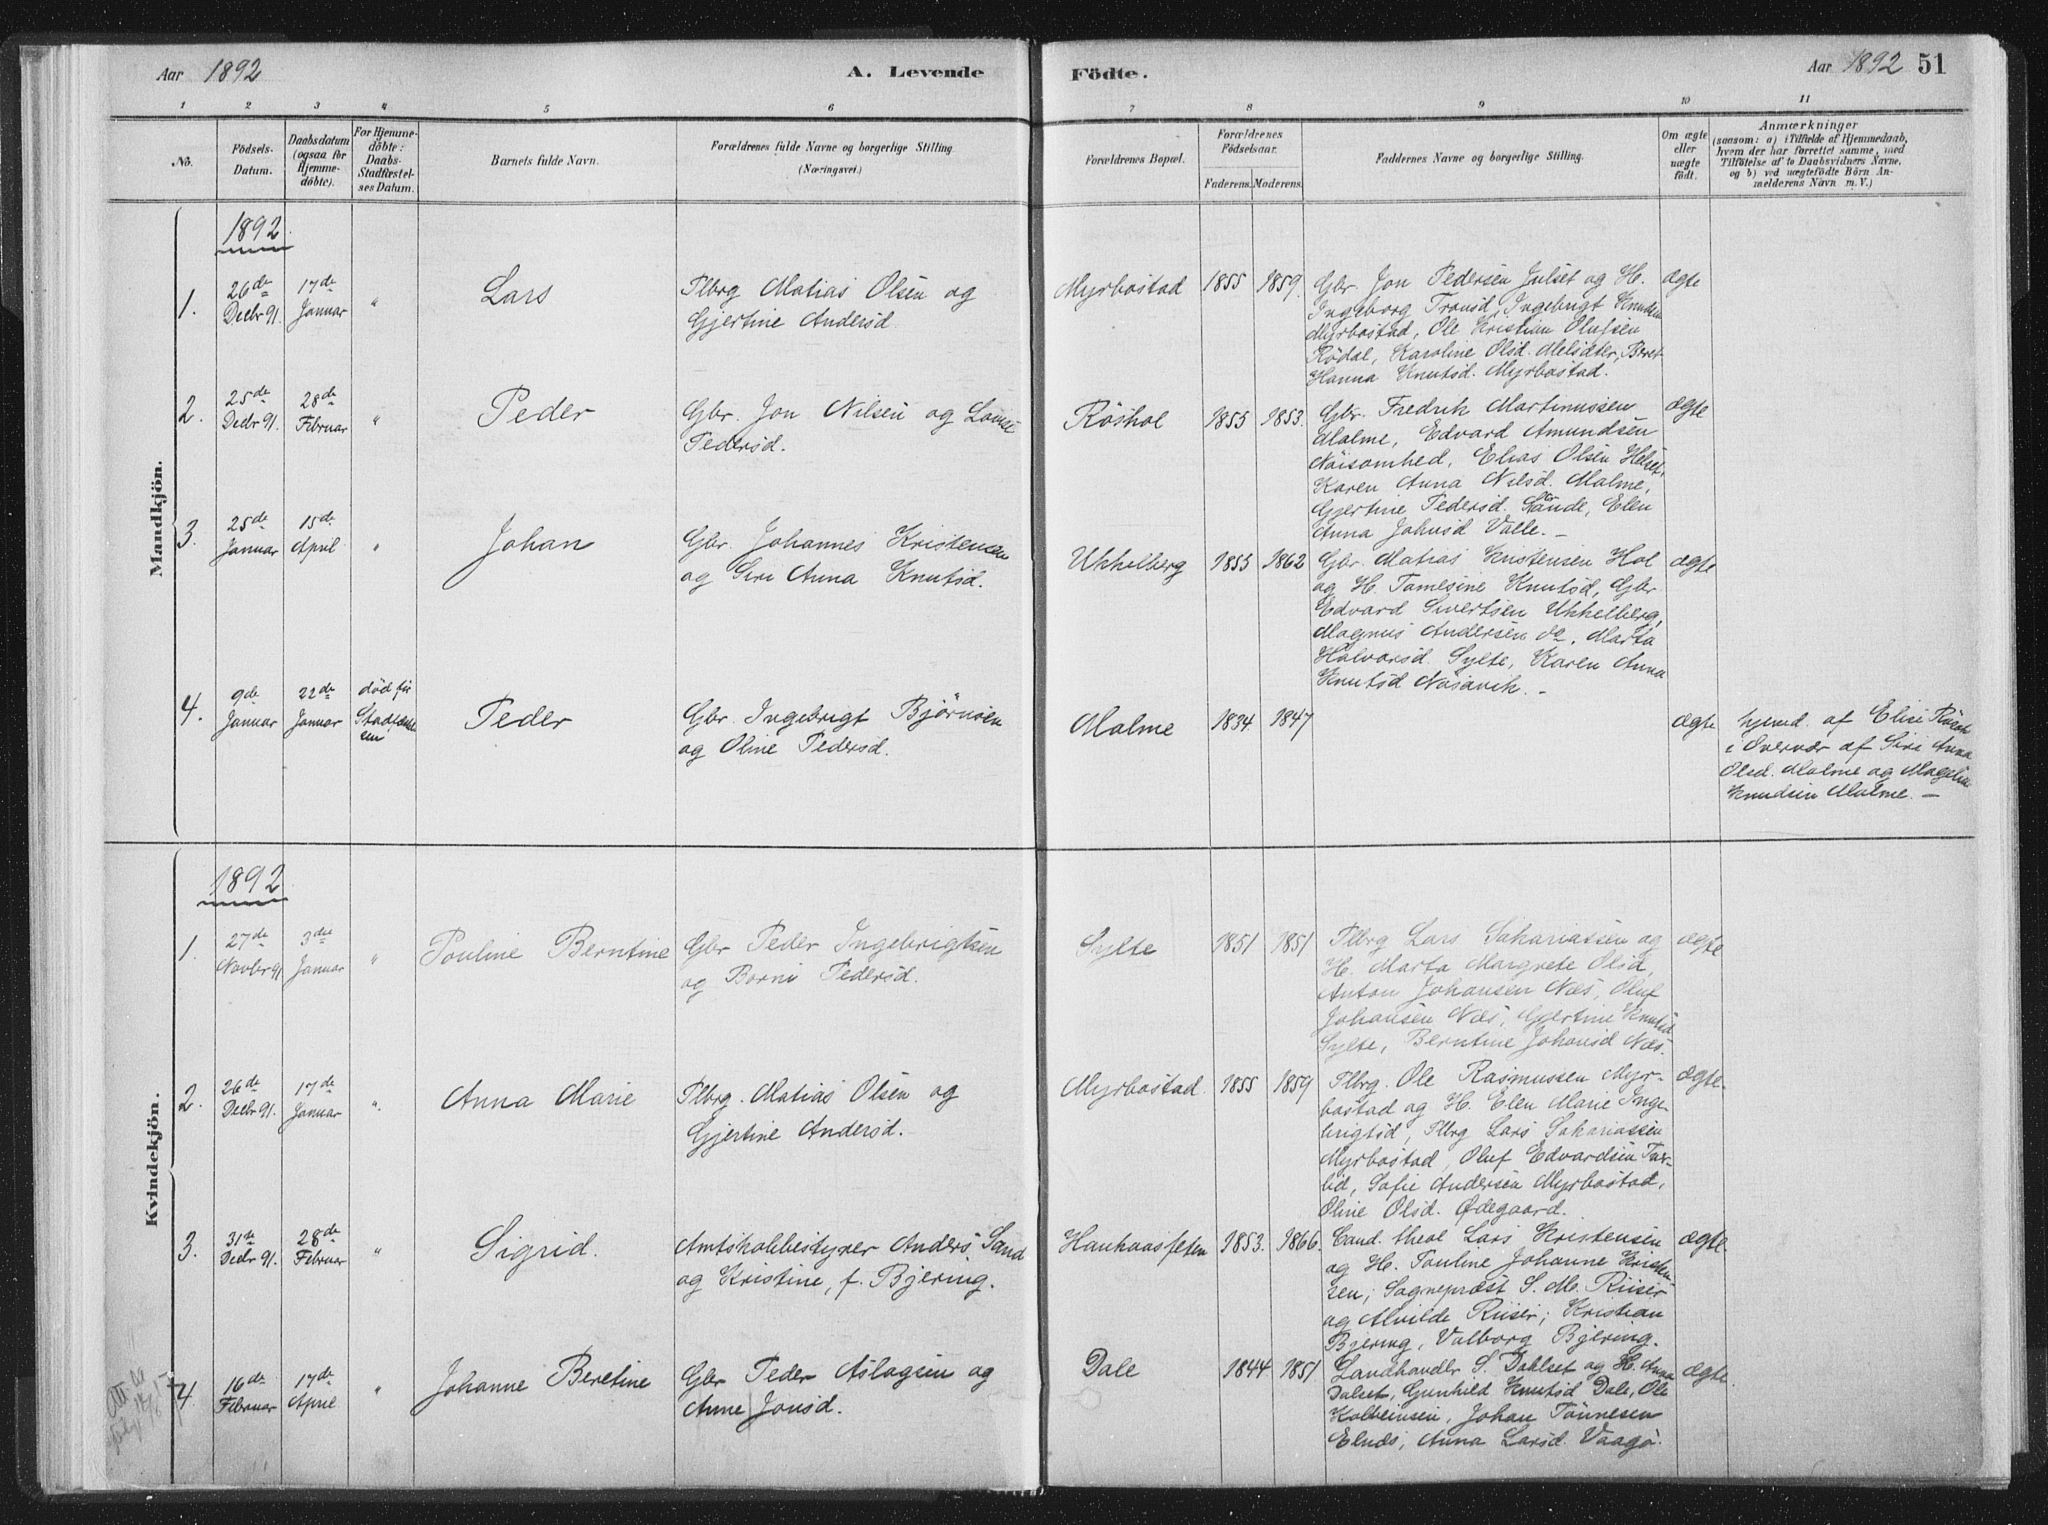 Aar 1892
A. Levende
Födte.
Aar 1892 51
1 2 3 4 5 6 7 8 9 10 11
No.
Födsels-
Datum.
Daabsdatum
(ogsaa for
Hjemme-
döbte).
For Hjemme-
döbte:
Daabs-
Stadfæstel-
ses Datum.
Barnets fulde Navn.
Forældrenes fulde Navne og borgerlige Stilling
(Næringsvei.)
Forældrenes Bopæl.
Forældrenes
Födselsaar.
Faderens. Moderens.
Faddernes Navne og borgerlige Stilling.
Om ægte
eller
uægte
födt.
Anmærkninger
(saasom: a) i Tilfælde af Hjemmedaab,
hvem der har forrettet samme, med
Tilföielse af to Daabsvidners Navne,
og b) ved uægtefödte Börn An-
melderens Navn m. V.)
Mandkjön.
1892
1.
26de
Decbr 91.
17de
Januar
"
Lars
Plbrg Matias Olsen og
Gjertine Andersd.
Myrbostad
1855
1859.
Gbr. Jon Pedersen Julset og H.
Ingeborg Tronsd, Ingebrigt Knudsen
Myrbostad, Ole Kristian Olufsen
Rödal, Karoline Olsd. Melsæter, Beret
Hanna Knutsd. Myrbostad.
ægte
2.
25de
Decbr 91.
28de
Februar
"
Peder
Gbr. Jon Nilsen og Louise
Pedersd.
Röshol
1855
1853.
Gbr. Fredrik Martinussen
Malme, Edvard Amundsen
Nöisomhed, Elias Olsen Helset,
Karen Anna Nilsd. Malme,
Gjertine Pedersd. Sande, Elen
Anna Johnsd Valle. —
ægte
3.
25de
Januar
15de
April
"
Johan
Gbr. Johannes Kristensen
og Siri Anna Knutsd.
Ukkelberg
1855
1862
Gbr. Matias Kristensen Hol
og H. Tamesine Knutsd, Gbr
Edvard Sivertsen Ukkelberg,
Magnus Andersen do, Marta
Halvorsd. Sylte, Karen Anna
Knutsd Näsavik. —
ægte
4.
9de
Januar
22de
Januar
död för
Stadfæstel-
sen
Peder
Gbr. Ingebrigt Björnsen
og Oline Pedersd.
Malme
1834
1847
ægte
hjemd. af Elise
i Overvær af Siri Anna
Olsd. Malme og
Knudsen Malme. —
Kvindekjön.
1892
1.
27de
Novbr 91
3die
Januar
"
Pouline Berntine
Gbr Peder Ingebrigtsen
og Borni Pedersd.
Sylte
1851
1851
Plbrg Lars Sakariassen og
H. Marta Margrete Olsd,
Anton Johansen Næs, Oluf
Johansen Næs, Gjertine Knutsd
Sylte, Berntine Johansd Næs.
ægte
2.
26de
Decbr 91.
17de
Januar
"
Anna Marie
Plbrg. Matias Olsen og
Gjertine Andersd.
Myrbostad.
1855
1859
Plbrg. Ole Rasmussen Myr-
bostad og H. Elen Marie Inge-
brigtsd, Plbrg Lars Sakariassen
Myrbostad, Oluf Edvardsen Tar-
lid, Sofie Andersen Myrbostad,
Oline Olsd. Ødegaard.
ægte.
3.
31te
Decbr 91.
28de
Februar
"
Sigrid.
Amtskolebestyrer Anders Sand
og Kristine, f. Bjering.
Haukaasfeten
1853.
1866.
Cand. theol Lars Kristensen
og H. Pauline Johanne Kristen-
sen; Sogneprest S. M. Riiser
og Alvilde Riiser; Kristian
Bjering, Valborg Bjering.
ægte.
4.
16de
Februar
17de
April
"
Johanne Beretine
Gbr Peder Aslagsen og
Anne Jonsd.
Dale
1844
1851
Landhandlr S. Dahlset og H. Anna
Dalset, Gunhild Knutsd Dale, Ole
Kolbeinsen, Johan Tönnesen
Elnæs, Anna Larsd. Vaagö.
ægte.